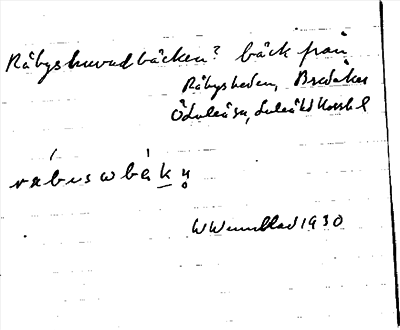 Råbyshuvudbäcken? bäck från
Råbysheden, Bredåker
Överluleå sn,
råbuswbèkṇ
WWennblad 1930